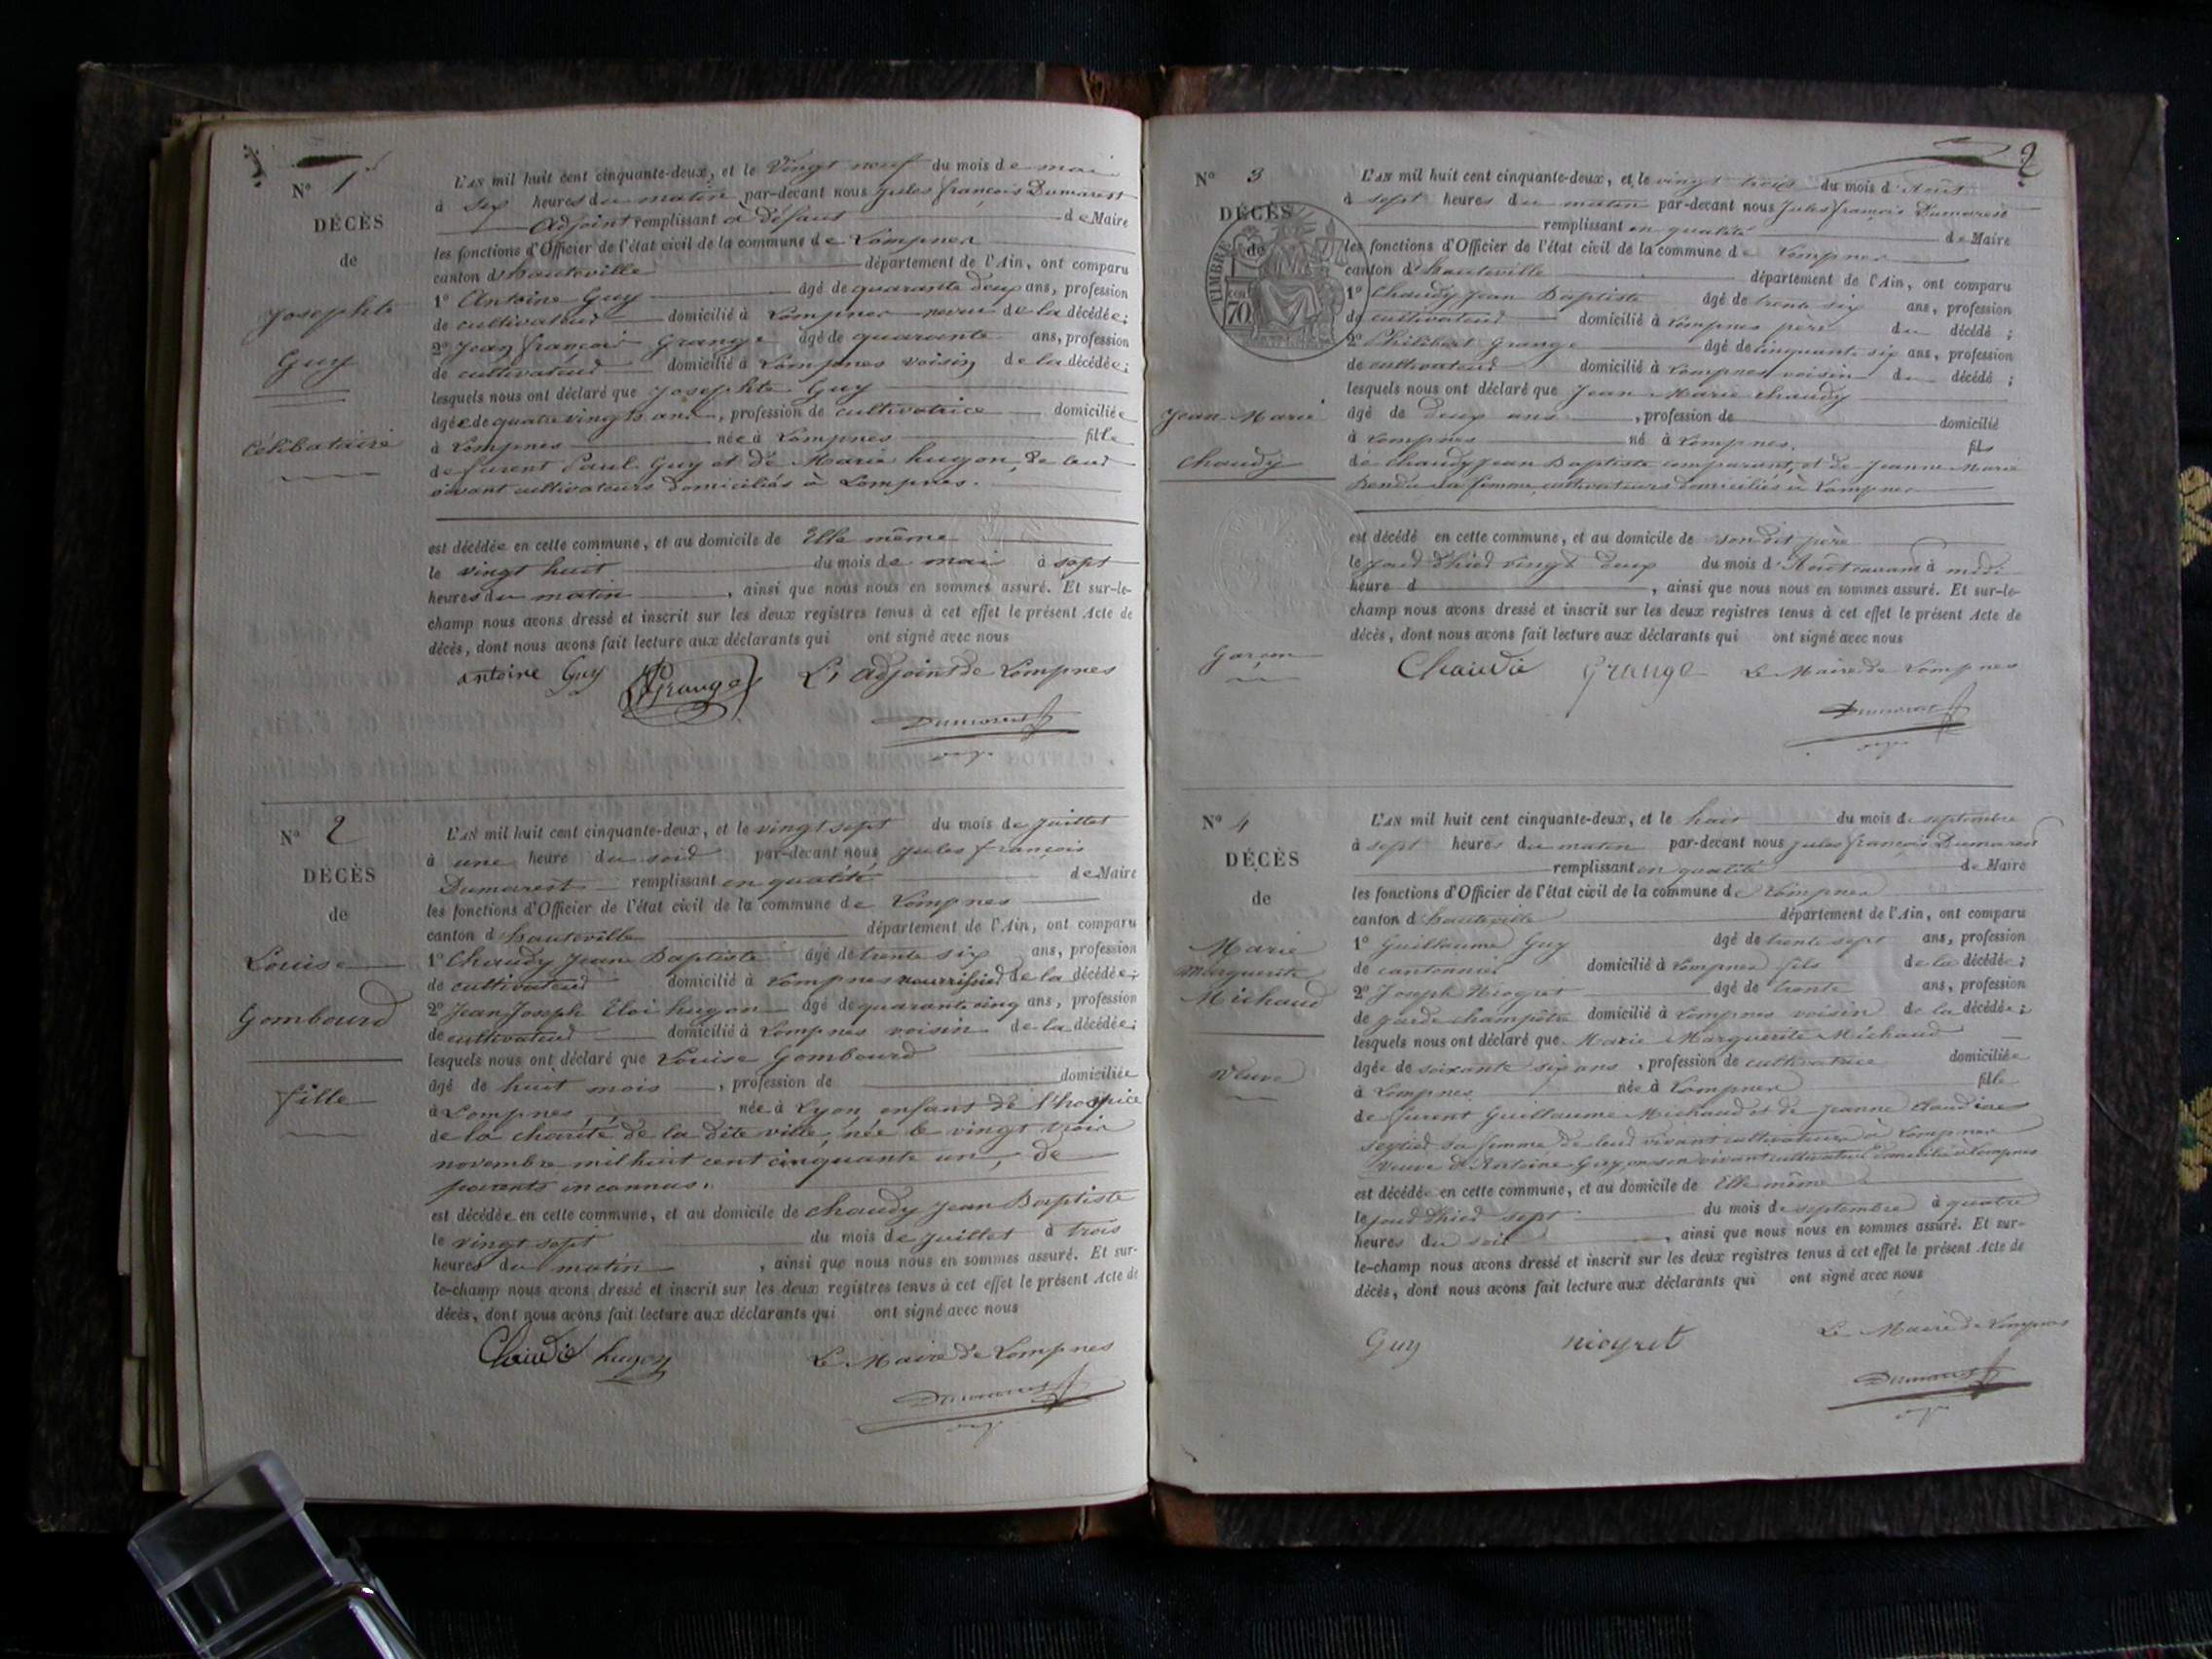 N° 1
DÉCÈS
de
Josephte
Guy
Célibataire
L'AN mil huit cent cinquante-deux, et le Vingt neuf du mois de mai
à six heures du matin par-devant nous Jules françois Dumarest
Adjoint remplissant à défaut de Maire
les fonctions d'Officier de l'état civil de la commune de Lompnes
canton d'hauteville département de l'Ain, ont comparu
1° Antoine Guy âgé de quarante deux ans, profession
de cultivateur domicilié à Lompnes neveu de la décédée;
2° Jean françois Grange âgé de quarante ans, profession
de cultivateur domicilié à Lompnes voisin de la décédée;
lesquels nous ont déclaré que Josephte Guy
âgée de quatre vingts ans, profession de cultivatrice domiciliée
à Lompnes née à Lompnes fille
de furent Paul Guy et de Marie hugon, de leur
vivant cultivateurs domiciliés à Lompnes.
est décédée en cette commune, et au domicile de Elle même
le vingt huit du mois de mai à sept
heures du matin, ainsi que nous nous en sommes assuré. Et sur-le-
champ nous avons dressé et inscrit sur les deux registres tenus à cet effet le présent Acte de
décès, dont nous avons fait lecture aux déclarants qui ont signé avec nous
antoine Guy Grange L'adjoint de Lompnes
Dumarest
N° 2
DÉCÈS
de
Louise
Gombourd
fille
L'AN mil huit cent cinquante-deux, et le vingt sept du mois de juillet
à une heure du soir par-devant nous Jules françois
Dumarest remplissant en qualité de Maire
les fonctions d'Officier de l'état civil de la commune de Lompnes
canton d'hauteville département de l'Ain, ont comparu
1° Chaudy Jean Baptiste âgé de trente six ans, profession
de cultivateur domicilié à Lompnes nourrissier de la décédée;
2° Jean Joseph Eloi hugon âgé de quarante cinq ans, profession
de cultivateur domicilié à Lompnes voisin de la décédée;
lesquels nous ont déclaré que Louise Gombourd
âgé de huit mois, profession de domiciliée
à Lompnes née à Lyon, enfant de l'hospice
de la charité de la dite ville, née le vingt trois
novembre mil huit cent cinquante un, de
parents inconnus.
est décédée en cette commune, et au domicile de chaudy Jean Baptiste
le vingt sept du mois de juillet à trois
heures du matin, ainsi que nous nous en sommes assuré. Et sur-
le-champ nous avons dressé et inscrit sur les deux registres tenus à cet effet le présent Acte de
décès, dont nous avons fait lecture aux déclarants qui ont signé avec nous
Chaudie hugon Le Maire de Lompnes
Dumarest
2
N° 3
DÉCÈS
de
TIMBRE
70
Jean Marie
Chaudy
Garçon
L'AN mil huit cent cinquante-deux, et le vingt trois du mois d'Août
à sept heures du matin par-devant nous Jules françois Dumarest
remplissant en qualité de Maire
les fonctions d'Officier de l'état civil de la commune de Lompnes
canton d'hauteville département de l'Ain, ont comparu
1° Chaudy Jean Baptiste âgé de trente six ans, profession
de cultivateur domicilié à Lompnes père du décédé;
2° Philibert Grange âgé de cinquante six ans, profession
de cultivateur domicilié à Lompnes voisin du décédé;
lesquels nous ont déclaré que Jean Marie Chaudy
âgé de deux ans, profession de domicilié
à Lompnes né à Lompnes. fils
de chaudy Jean Baptiste comparant, et de Jeanne Marie
sa femme, cultivateurs domiciliés à Lompnes
est décédé en cette commune, et au domicile de son dit père
le jour d'hier vingt deux du mois d'Août courant à midi
heure d, ainsi que nous nous en sommes assuré. Et sur-le-
champ nous avons dressé et inscrit sur les deux registres tenus à cet effet le présent Acte de
décès, dont nous avons fait lecture aux déclarants qui ont signé avec nous
Chaudie Grange Le Maire de Lompnes
Dumarest
N° 4
DÉCÈS
de
Marie
Marguerite
Michaud
Veuve
L'AN mil huit cent cinquante-deux, et le huit du mois de septembre
à sept heures du matin par-devant nous Jules françois Dumarest
remplissant en qualité de Maire
les fonctions d'Officier de l'état civil de la commune de Lompnes
canton d'hauteville département de l'Ain, ont comparu
1° Guillaume Guy âgé de trente sept ans, profession
de cantonnier domicilié à Lompnes fils de la décédée;
2° Joseph Niogret âgé de trente ans, profession
de garde champêtre domicilié à Lompnes voisin de la décédée;
lesquels nous ont déclaré que Marie Marguerite Michaud
âgée de soixante six ans, profession de cultivatrice domiciliée
à Lompnes née à Lompnes fille
de furent Guillaume Michaud et de Jeanne Claudine
sa femme de leur vivant cultivateurs à Lompnes
Veuve d'Antoine Guy, en son vivant cultivateur domicilié à Lompnes
est décédée en cette commune, et au domicile de Elle même
le jour d'hier sept du mois de septembre à quatre
heures du soir, ainsi que nous nous en sommes assuré. Et sur-
le-champ nous avons dressé et inscrit sur les deux registres tenus à cet effet le présent Acte de
décès, dont nous avons fait lecture aux déclarants qui ont signé avec nous
Guy niogret Le Maire de Lompnes
Dumarest